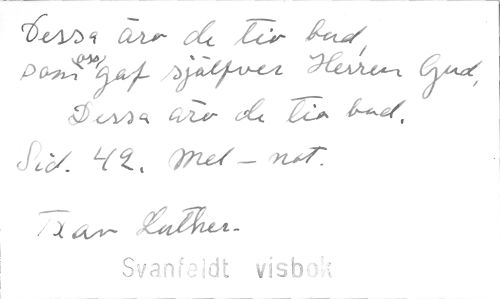 Dessa äro de tio bud,
som oss gaf sjelfver Herren Gud,
Dessa äro de tio bud.
Sid. 42. Mel-not.
Text av Luther.
Svanfeldt visbok